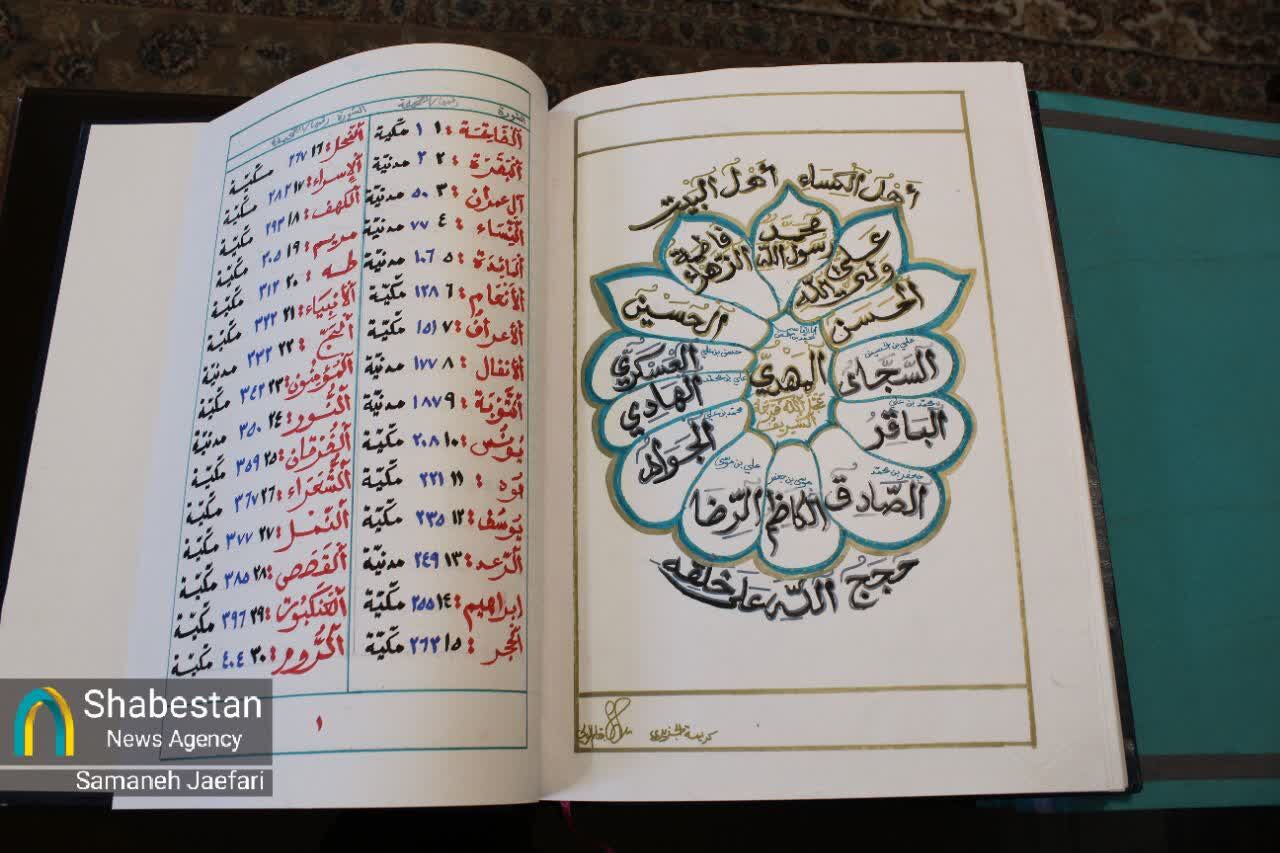 أهل الكساء أهل البيت
محمد رسول الله
علي ولي الله
فاطمة الزهراء
الحسن
الحسين
علي بن الحسين
السجاد
محمد بن علي
الباقر
جعفر بن محمد
الصادق
موسى بن جعفر
الكاظم
علي بن موسى
الرضا
محمد بن علي
الجواد
علي بن محمد
الهادي
حسن بن علي
العسكري
المهدي
عجل الله فرجه
الشريف
حجج الله على خلقه
السورة
الفاتحة : ١ ١ مكية
البقرة : ٢ ٢ مدنية
آل عمران : ٣ ٥٠ مدنية
النساء : ٤ ٧٧ مدنية
المائدة : ٥ ١٠٦ مدنية
الأنعام : ٦ ١٢٨ مكية
الأعراف : ٧ ١٥١ مكية
الأنفال : ٨ ١٧٧ مدنية
التوبة : ٩ ١٨٧ مدنية
يونس : ١٠ ٢٠٨ مكية
هود : ١١ ٢٢١ مكية
يوسف : ١٢ ٢٣٥ مكية
الرعد : ١٣ ٢٤٩ مدنية
إبراهيم : ١٤ ٢٥٥ مكية
الحجر : ١٥ ٢٦٢ مكية
السورة
النحل : ١٦ ٢٦٧ مكية
الإسراء : ١٧ ٢٨٢ مكية
الكهف : ١٨ ٢٩٣ مكية
مريم : ١٩ ٣٠٥ مكية
طه : ٢٠ ٣١٢ مكية
الأنبياء : ٢١ ٣٢٢ مكية
الحج : ٢٢ ٣٣٢ مدنية
المؤمنون : ٢٣ ٣٤٢ مكية
النور : ٢٤ ٣٥٠ مدنية
الفرقان : ٢٥ ٣٥٩ مكية
الشعراء : ٢٦ ٣٦٧ مكية
النمل : ٢٧ ٣٧٧ مكية
القصص : ٢٨ ٣٨٥ مكية
العنكبوت : ٢٩ ٣٩٦ مكية
الروم : ٣٠ ٤٠٤ مكية
١
Shabestan
News Agency
Samaneh Jaefari